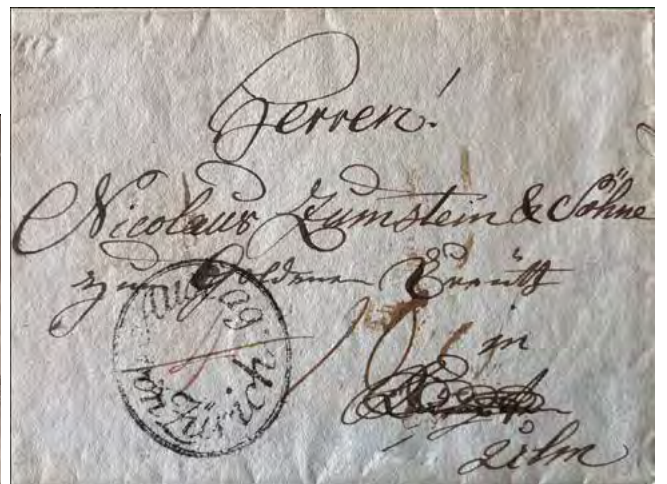 Herren!
Nicolaus Zumstein & Söhne
zum Goldenen Creütz
in
Ulm
auslag
von Zürich